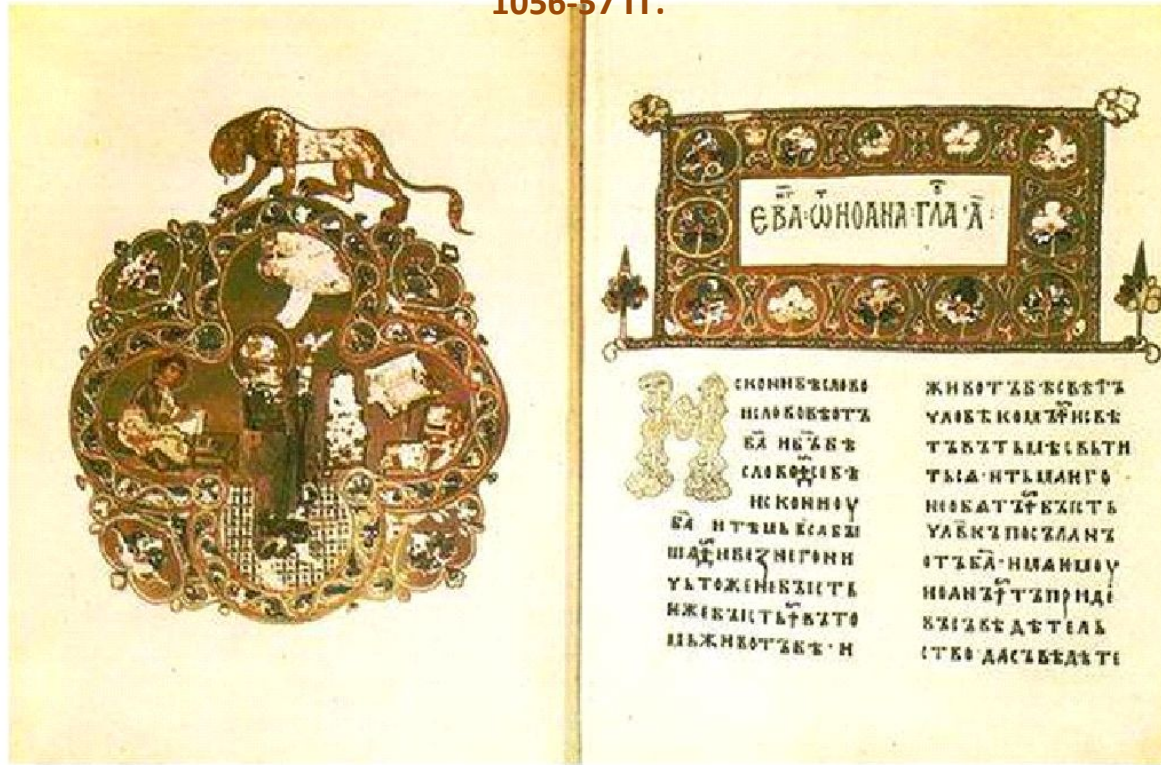 1056-57 гг.
ЕВ҃А·ѾИОАНА·ГЛА·А҃:
Исконибѣслово
ислововѣотъ
б҃а ибъ҃бѣ
словосебѣ
искониоу
б҃а итѣмьвсѧбꙑ
шѧибезнегони
чьтоженебꙑсть
ѥжебꙑстьвъто
мьживотъбѣ·и
животъбѣсвѣтъ
чловѣкомъисвѣ
тъвътьмѣсвьти
тьсѧ·итьмаѥго
необѧтъбꙑсть
чл҃вкъпосъланъ
отъб҃а·имѧѥмоу
иоанътъприде
въсъвѣдѣтель
ство·дасъвѣдѣте